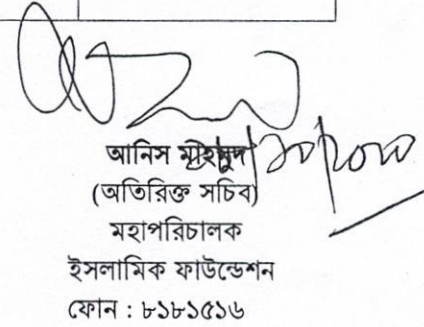 আনিস মাহমুদ
(অতিরিক্ত সচিব)
মহাপরিচালক
ইসলামিক ফাউন্ডেশন
ফোন : ৮১৮১৫১৬